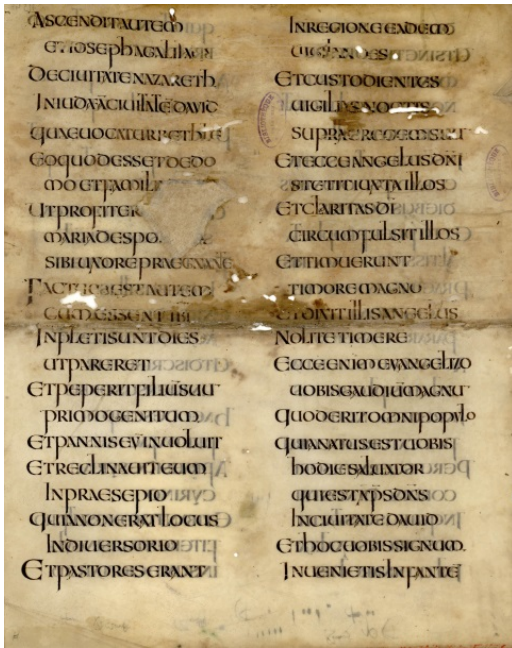 ASCENDITAUTEM
ETIOSEPHAGALILAEA
DECIUITATENAZARETH
INIUDAEACIUITATEDAVID
QUAEUOCATURBETHLE
EOQUODESSETDEDO
MOETFAMIL
UTPROFITER
MARIADESPO
SIBIUXOREPRAEGNANTE
FACTUMESTAUTEM
CUMESSENTIBI
INPLETISUNTDIES
UTPARERET
ETPEPERITFILIUSUU
PRIMOGENITUM
ETPANNISEVINUOLUIT
ETRECLINAUITEUM
INPRAESEPIO
QUIANONERATLOCUS
INDIUERSORIO
ETPASTORESERANT
INREGIONEEADEM
UIGILANTES
ETCUSTODIENTES
UIGILIASNOCTIS
SUPRAGREGEMSUU
ETECCEANGELUSDNI
STETITIUXTAILLOS
ETCLARITASDI
CIRCUMFULSITILLOS
ETTIMUERUNT
TIMOREMAGNO
ETDIXITILLISANGELUS
NOLITETIMERE
ECCEENIMEVANGELIZO
UOBISGAUDIUMAGNU
QUODERITOMNIPOPULO
QUIANATUSESTUOBIS
HODIESALUATOR
QUIESTXPSDNS
INCIUITATEDAUID
ETHOCUOBISSIGNUM
INUENIETISINFANTE